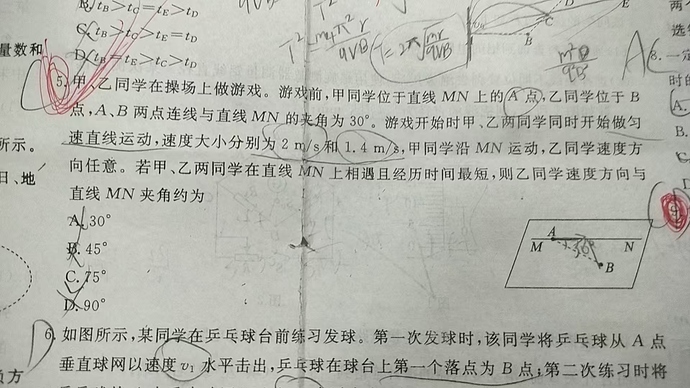 B. tB>tC=tE>tD
T²= r/qvB
T=2π√mr/qVB
C. tB>tC>tE>tD
D. tB=tE>tC=tD
量数和
5. 甲、乙同学在操场上做游戏。游戏前,甲同学位于直线 MN 上的 A 点,乙同学位于 B
点,A、B 两点连线与直线 MN 的夹角为 30°。游戏开始时甲、乙两同学同时开始做匀
速直线运动,速度大小分别为 2 m/s 和 1.4 m/s,甲同学沿 MN 运动,乙同学速度方
向任意。若甲、乙两同学在直线 MN 上相遇且经历时间最短,则乙同学速度方向与
直线 MN 夹角约为
A. 30°
B. 45°
C. 75°
D. 90°
A
M
N
B
D
6. 如图所示,某同学在乒乓球台前练习发球。第一次发球时,该同学将乒乓球从 A 点
垂直球网以速度 v1 水平击出,乒乓球在球台上第一个落点为 B 点;第二次练习时将
所示。
日、地
负方
两个
选
8. 一定
的
A.
B.
C.
9
AC
B
C
D
E